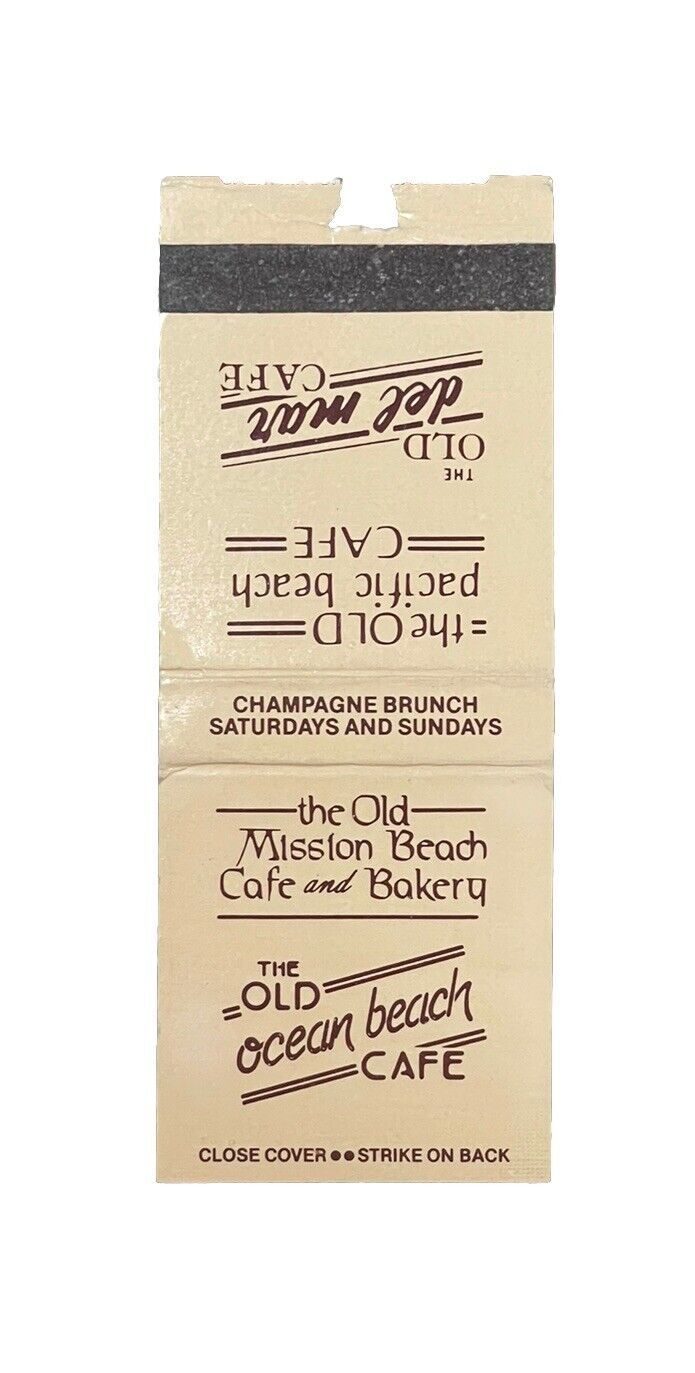 THE
OLD
del mar
CAFÉ
the OLD
pacific beach
CAFE
CHAMPAGNE BRUNCH
SATURDAYS AND SUNDAYS
the Old
Mission Beach
Cafe and Bakery
THE
OLD
ocean beach
CAFE
CLOSE COVER ●● STRIKE ON BACK